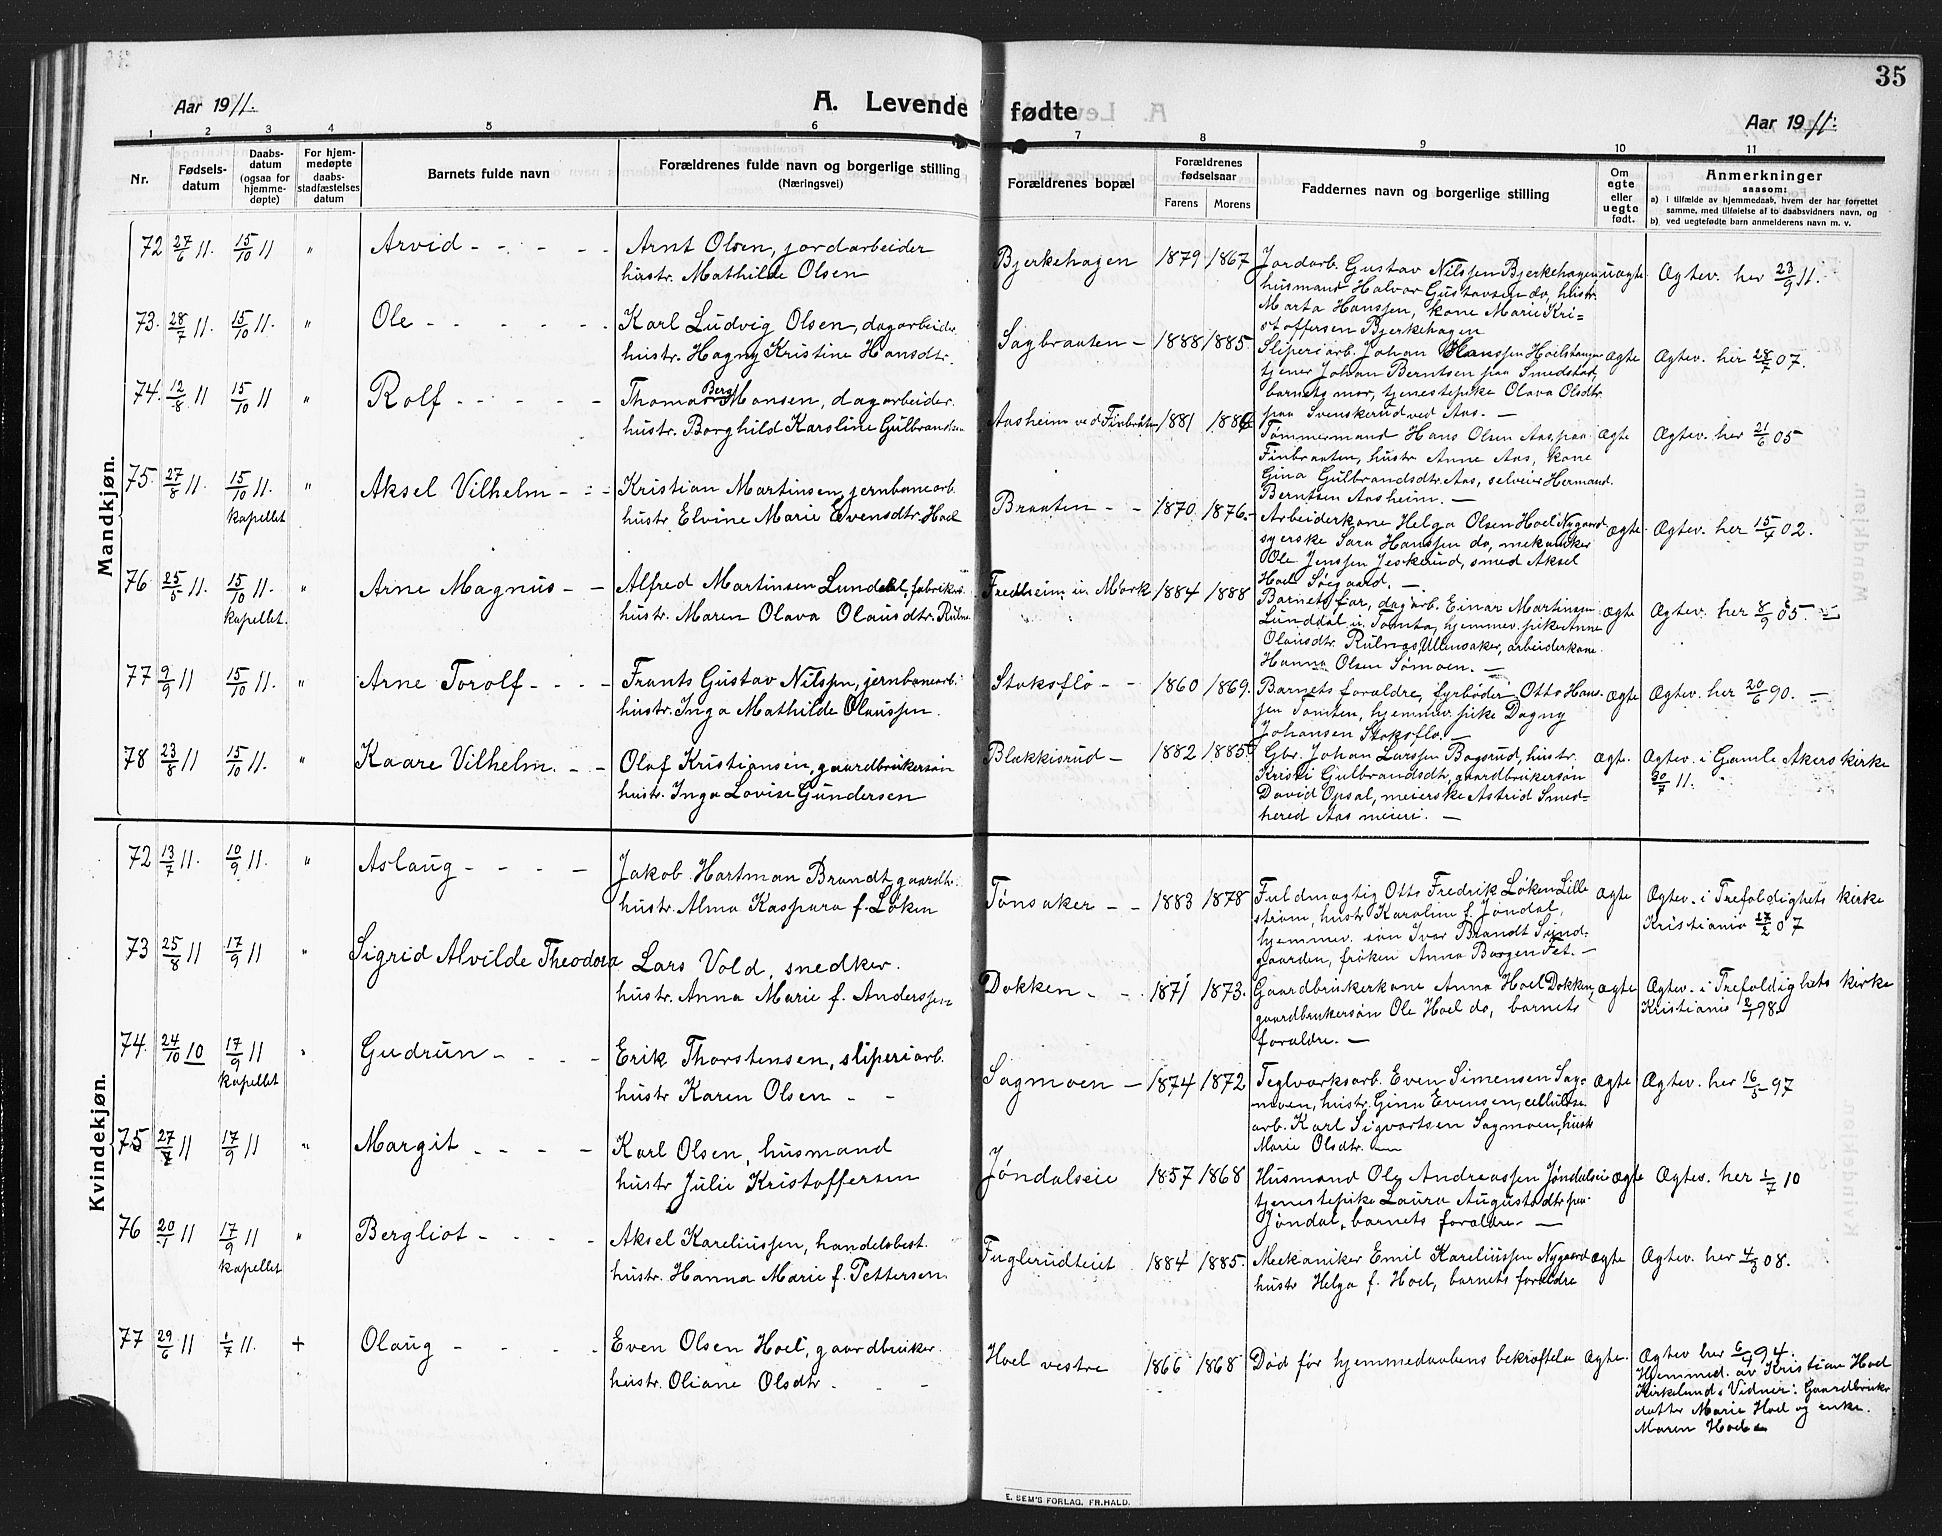 35
Aar 1911.
A. Levende fødte
Aar 1911.
1 2 3 4 5 6 7 8 9 10 11
Nr.
Fødsels-
datum
Daabs-
datum
(ogsaa for
hjemme-
døpte)
For hjem-
medøpte
daabs-
stadfæstelses
datum
Barnets fulde navn
Forældrenes fulde navn og borgerlige stilling
(Næringsvei)
Forældrenes bopæl
Forældrenes
fødselsaar
Farens Morens
Faddernes navn og borgerlige stilling
Om
egte
eller
uegte
født.
Anmerkninger
saasom:
a) i tilfælde av hjemmedaab, hvem der har forrettet
samme, med tilføielse af to daabsvidners navn, og
b) ved uegtefødte barn anmelderens navn m. v.
Mandkjøn.
72 27/6 11. 15/10 11 " Arvid - - - -
Arnt Olsen, jordarbeider
hustr. Mathilde Olsen
Bjerkehagen 1879 1867
Jordarb. Gustav Nilssen Bjerkehagen
husmand Halvor Gustavsen do, hustr.
Marta Hanssen, kone Marie Kri=
stoffersen Bjerkehagen
uægte Ægtev. her 23/9 11.
73. 28/7 11. 15/10 11. " Ole - - - - - -
Karl Ludvig Olsen, dagarbeider
hustr. Hagny Kristine Hansdtr.
Sagbraaten - 1888 1885.
Sliperiarb. Johan Hanssen Hoelstangen
tjener Johan Berntsen paa Smedstad,
barnets mor, tjenestepike Olava Olsdtr.
paa Svenskerud ved Aas. -
ægte Ægtev. her 28/7 07.
74. 12/8 11 15/10 11 " Rolf - - - - -
Thomas Berg Hansen, dagarbeider.
hustr. Borghild Karoline Gulbrandsen
Aasheim ved Finbråten 1881 1886
Tømmermand Hans Olsen Aas paa
Finbraaten, hustr. Anne Aas, kone
Gina Gulbrandsdtr. Aas, selveier Hermand
Berntsen Aasheim. -
ægte Ægtev. her 21/6 05
75. 27/8 11. 15/10 11. kapellet " Aksel Vilhelm - - -
Kristian Martinsen, jernbanearb.
hustr. Elvine Marie Evensdtr. Hoel
Braaten - - 1870. 1876. -
Arbeiderkone Helga Olsen Hoel Nygaard
syerske Sara Hanssen do, mekaniker
Ole Jenssen Jeskerud, smed Aksel
Hoel Søegaard. -
ægte Ægtev. her 15/4 02.
76 25/5 11. 15/10 11. kapellet. " Arne Magnus - -
Alfred Martinsen Lunddal, fabriks
hustr. Maren Olava Olausdtr. Rulnæs
Fredheim u. Mork 1884 1888
Barnets far, dagarb. Einar Martinsen
Lunddal u. Tomta, hjemmev. pike Anne
Olausdtr. Rulnæs, Ullensaker, arbeiderkone
Hanna Olsen Sømoen. -
ægte Ægtev. her 8/9 05.
77 9/9 11 15/10 11. " Arne Torolf - - - -
Frants Gustav Nilssen, jernbanearb.
hustr. Inga Mathilde Olaussen.
Stoksflo - - 1860 1869.
Barnets forældre, fyrbøder Otto Han-
sen Tomten, hjemmev. pike Dagny
Johansen Stoksflo. -
ægte Ægtev. her 20/6 90. -
78 23/8 11 15/10 11. " Kaare Vilhelm. - -
Olaf Kristiansen, gaardbrukersøn
hustr. Inga Lovise Gundersen
Blakkisrud - 1882 1885
Gbr. Johan Larssen Bogsrud, hustr.
Kristi Gulbrandsdtr, gaardbrukersøn
David Opsal, meierske Astrid Smed=
hered Aas meieri. -
ægte. Ægtev. i Gamle Akers kirke
30/7 11.
Kvindekjøn.
72 13/7 11. 10/9 11. " Aslaug - - - -
Jakob Hartman Brandt, gaardbr.
hustr. Alma Kaspara f. Løken
Tønsaker - - 1883 1878
Fuldmægtig Otto Fredrik Løken Lille
strøm, hustr. Karoline f. Jøndal,
hjemmev. søn Ivar Brandt Sund-
gaarden, frøken Anna Borgen Fet. -
ægte Ægtev. i Trefoldighets kirke
Kristiania 17/2 07
73 25/8 11 17/9 11 " Sigrid Alvilde Theodora
Lars Vold, snedker.
hustr. Anna Marie f. Anderssen
Dokken - - 1871 1873.
Gaardbrukerkone Anna Hoel Dokken,
gaardbrukersøn Ole Hoel do, barnets
forældre. -
ægte Ægtev. i Trefoldighets kirke
Kristiania 2/1 98.
74. 24/10 10 17/9 11 kapellet " Gudrun - - - -
Erik Thorstensen, sliperiarb.
hustr. Karen Olsen - -
Sagmoen - 1874 1872
Teglværksarb. Even Simensen Sag-
moen, hustr. Gina Evensen, cellulose
arb. Karl Sigvartsen Sagmoen, hustr.
Marie Olsdtr. -
ægte Ægtev. her 16/5 97
75 27/7 11 17/9 11 " Margit - - - -
Karl Olsen, husmand
hustr Julie Kristoffersen
Jøndalseie 1857 1868
Husmand Ole Andreassen Jøndalseie
tjenestepike Laura Augustadtr. paa
Jøndal, barnets forældre. -
ægte Ægtev. her 1/7 10
76 20/1 11 17/9 11 kapellet " Bergliot - - - -
Aksel Kareliussen, handelsbest.
hustr. Hanna Marie f. Pettersen.
Fuglerudteiet 1884 1885.
Mekaniker Emil Kareliussen Nygaard
hustr Helga f. Hoel, barnets forældre
ægte Ægtev. her 4/3 08.
77 29/6 11 1/7 11. + Olaug - - - -
Even Olsen Hoel, gaardbruker.
hustr. Oliane Olsdtr. - -
Hoel vestre 1866 1868
Død før hjemmedaabens bekræftelse
ægte. Ægtev her 6/4 94.
Hjemmed. av Kristian Hoel
Kirkelund. Vidner: Gaardbruker
datter Marie Hoel og enke.
Maren Hoel
E. SEM'S FORLAG, FR.HALD.